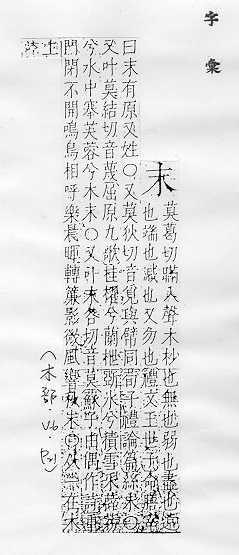 字彙
末
莫葛切瞞入聲木杪也無也弱也盡也遠
也端也減也又勿也禮文王世子命膳宰
曰末有原又姓○又莫狄切音覓與幦同荀子禮論篇絲末○
又叶莫結切音蔑屈原九歌桂櫂兮蘭枻氷兮積雪采薜荔
兮水中搴芙蓉兮木末○又叶末各切音莫蘇子由偶作詩重
門閉不開鳴鳥相呼樂晨暉轉簾影微風響秋末○从一在木
上
(木部·V6·P.1)